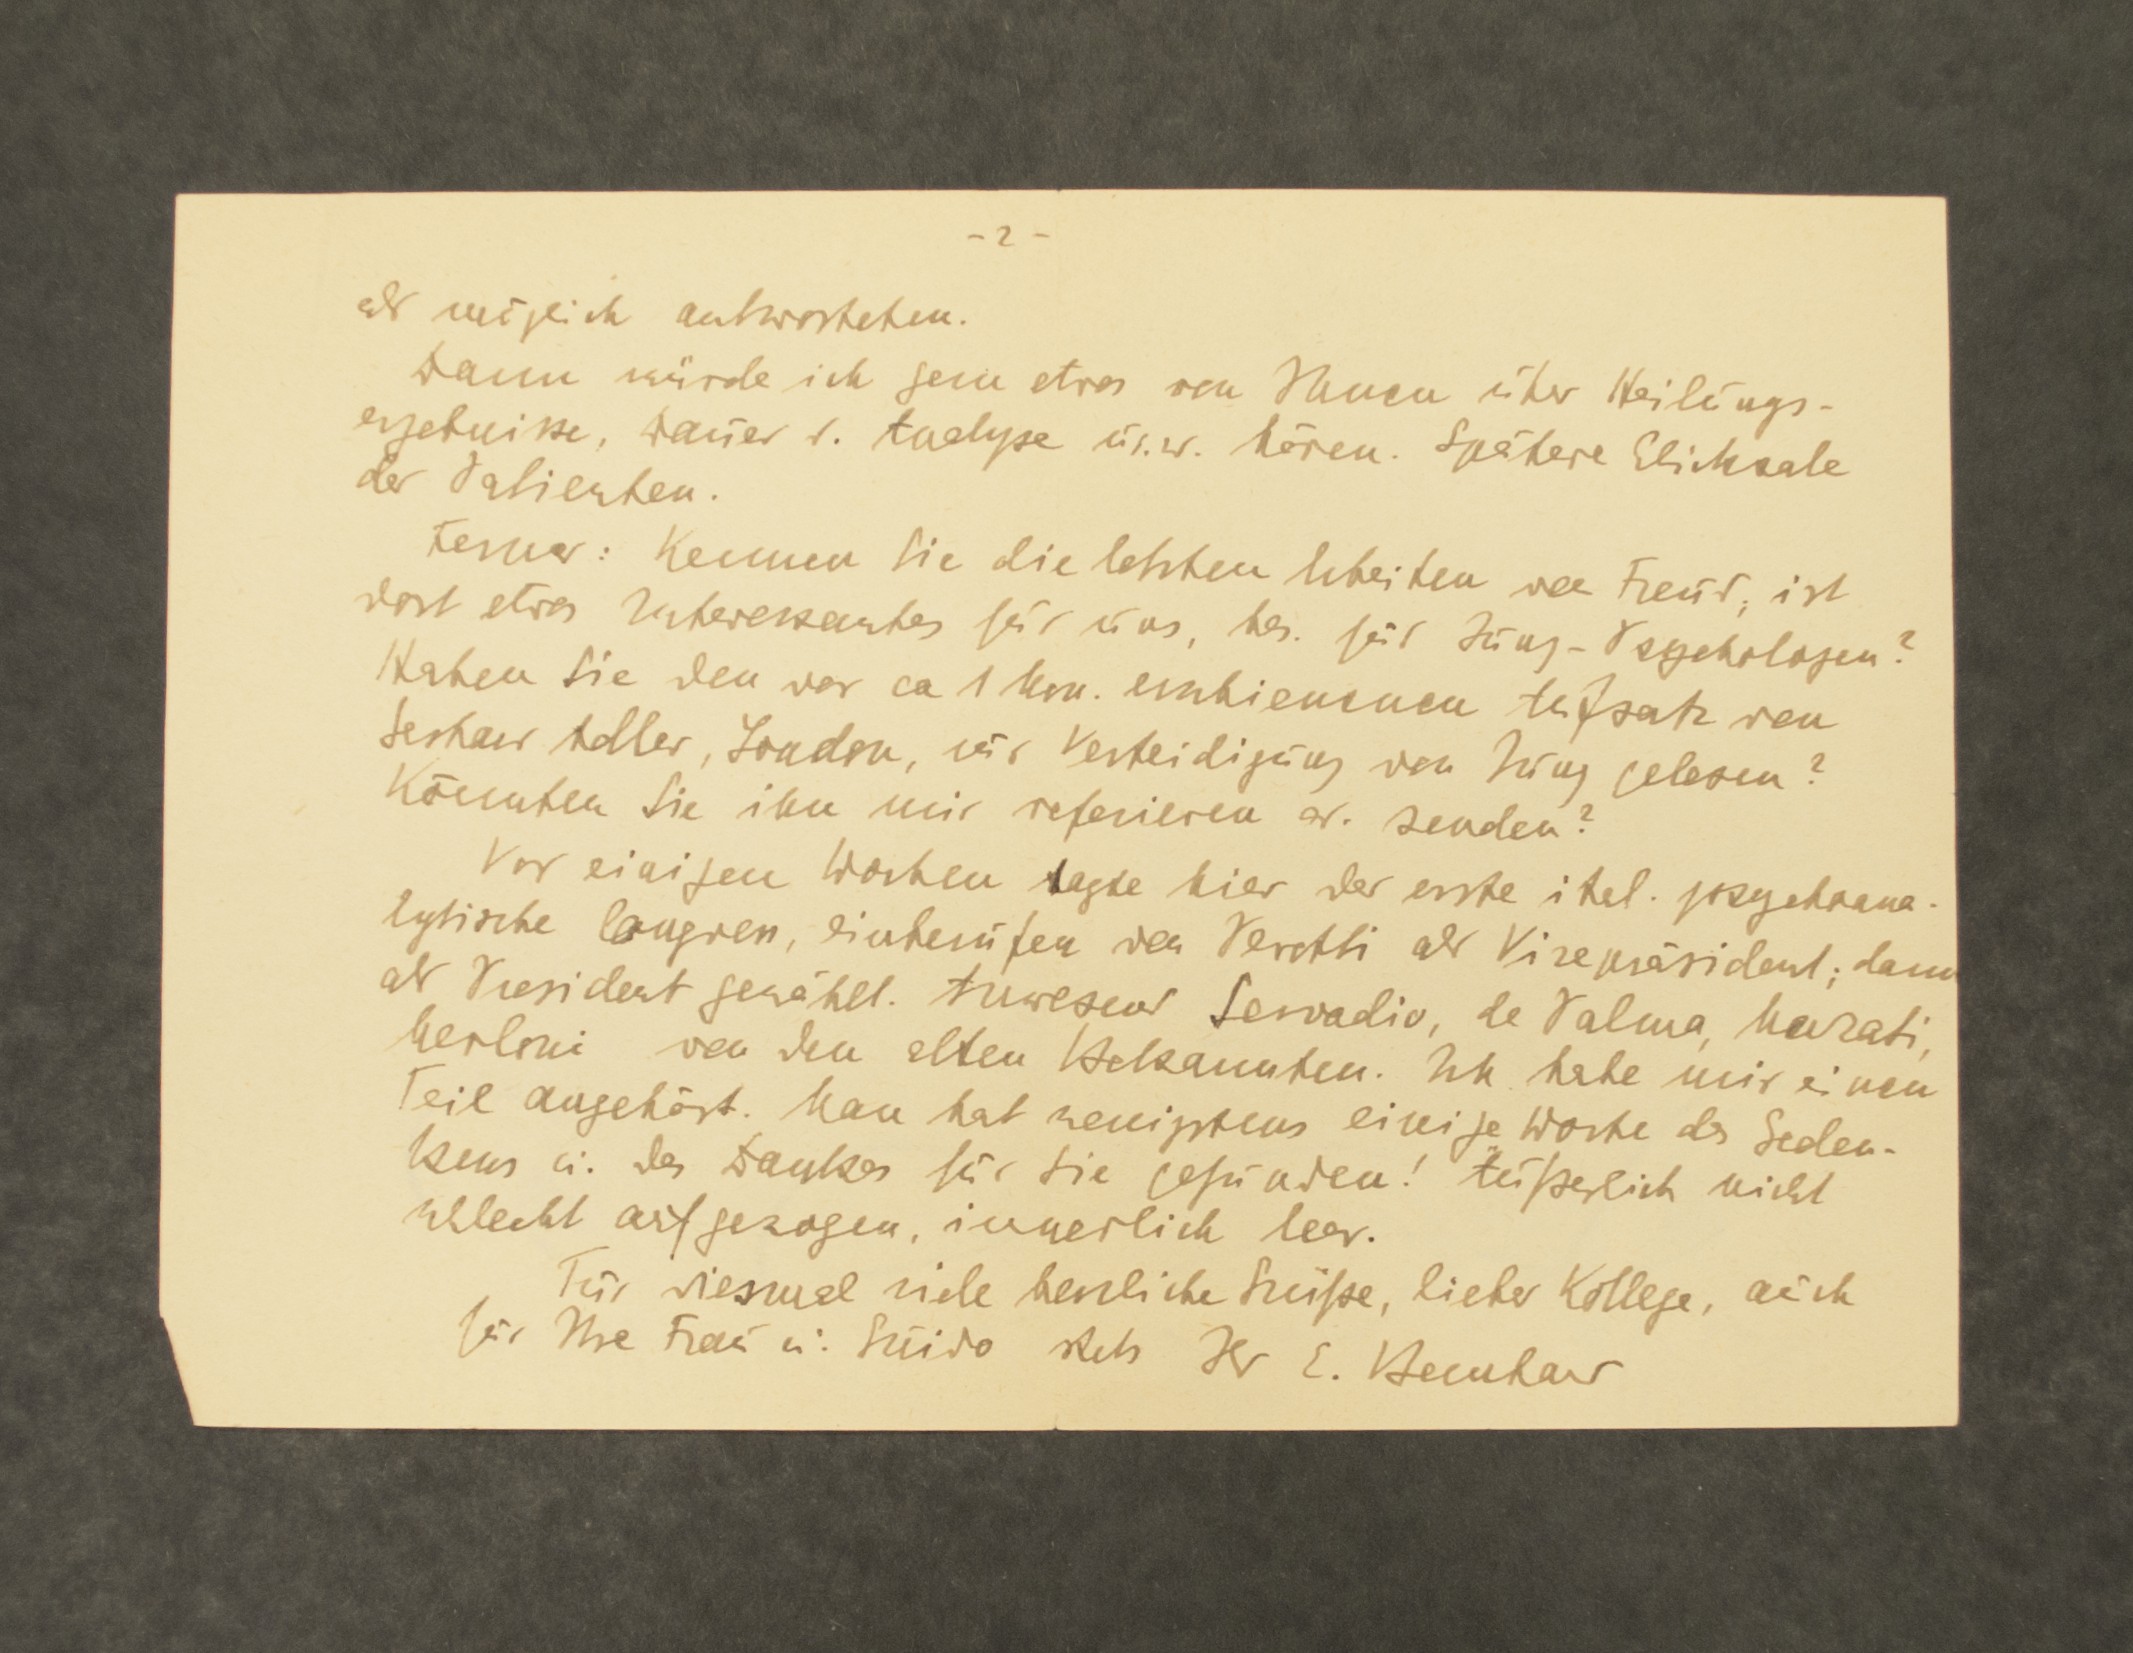 - 2 -
als möglich antworteten.
Dann würde ich gern etwas von Ihnen über Heilungs-
ergebnisse, Dauer d. Analyse u.s.w. hören. Spätere Schicksale
der Patienten.
Ferner: Kennen Sie die letzten Arbeiten von Freud; ist
dort etwas Interessantes für uns, bes. für Jung-Psychologen?
Haben Sie den vor ca 1 Mon. erschienenen Aufsatz von
Gerhard Adler, London, zur Verteidigung von Jung gelesen?
Könnten Sie ihn mir referieren od. senden?
Vor einigen Wochen tagte hier der erste ital. psychoana-
lytische Congress, einberufen von Perotti als Vizepräsident; dann
als Praesident gewählt. Anwesend Servadio, de Palma,
Merloni von den alten Bekannten. Ich habe mir einen
Teil angehört. Man hat wenigstens einige Worte des Geden-
kens u. des Dankes für Sie gefunden! Äußerlich nicht
schlecht aufgezogen, innerlich leer.
Für diesmal viele herzliche Grüße, lieber Kollege, auch
für Ihre Frau u. Guido stets Ihr E. Bernhard